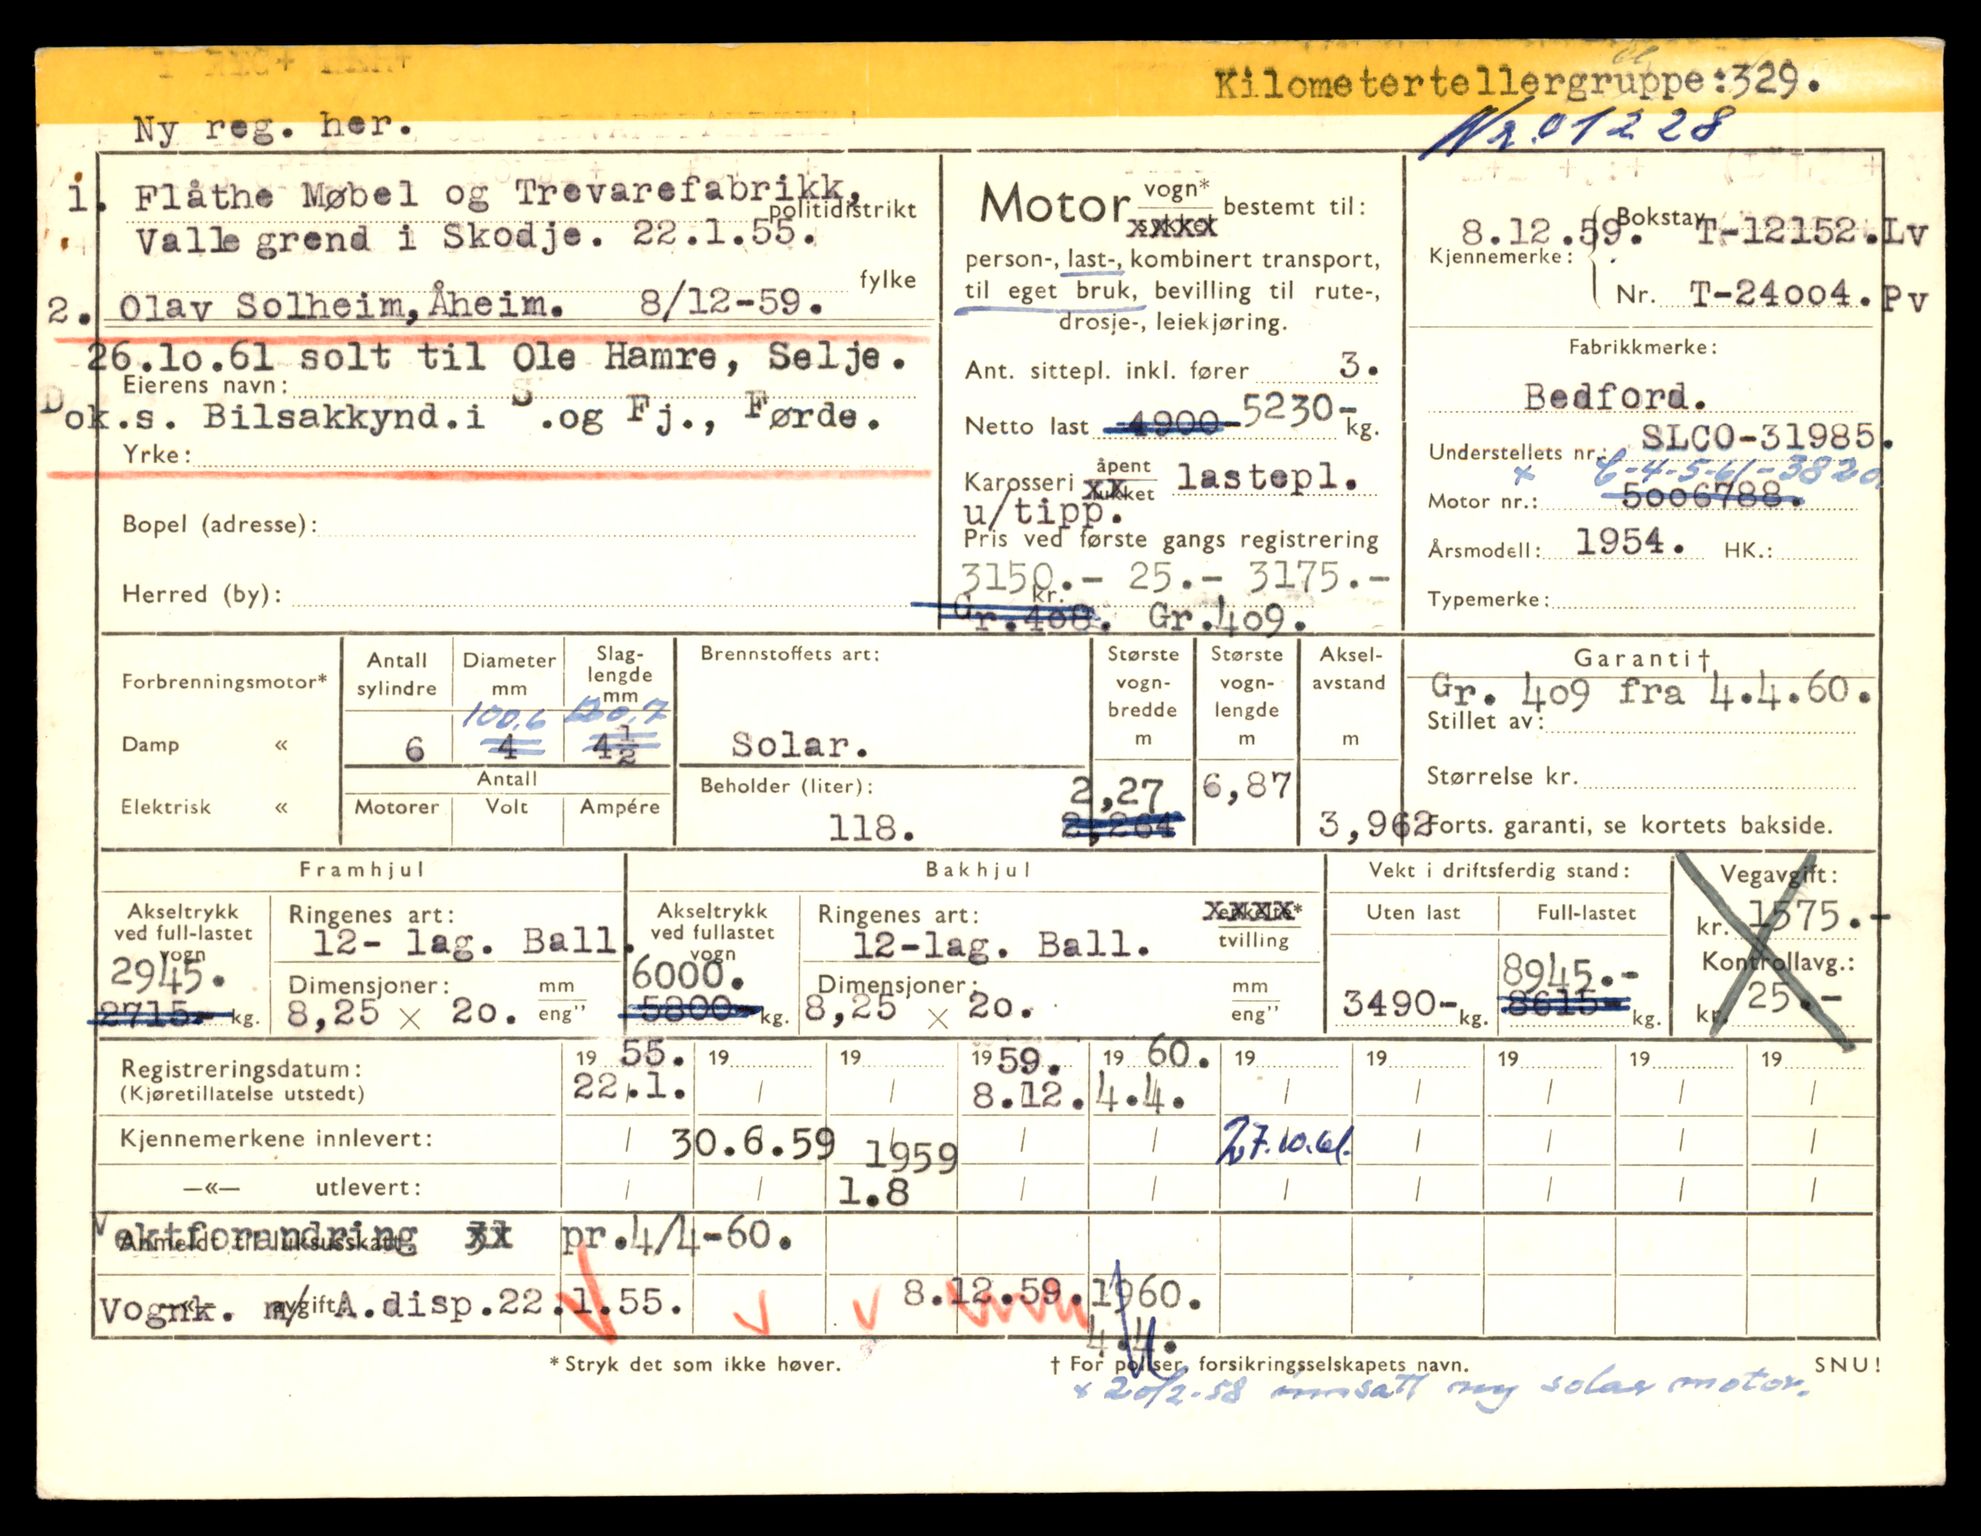 Kilometertellergruppe:329.
Ny reg. her.
Nr. 01228
1. Flåthe Møbel og Trevarefabrikk,
politidistrikt
Valle grend i Skodje. 22.1.55.
fylke
2. Olav Solheim, Åheim. 8/12-59.
26.10.61 solt til Ole Hamre, Selje.
Eierens navn:
Dok.s. Bilsakkynd.i S.og Fj., Førde.
Yrke:
Bopel (adresse):
Herred (by):
Motor vogn*
sykkel bestemt til:
person-, last-, kombinert transport,
til eget bruk, bevilling til rute-,
drosje-, leiekjøring.
Ant. sittepl. inkl. fører 3.
Netto last 4900- 5230- kg.
Karosseri åpent
lukket lastepl.
u/tipp.
Pris ved første gangs registrering
3150.- 25.- 3175.-
kr.
Gr.408. Gr.409.
8.12.59. Bokstav T-12152.Lv
Kjennemerke:
Nr. T-24004.Pv
Fabrikkmerke:
Bedford.
Understellets nr.: SLCO-31985.
x C-4-5-61-3820.
Motor nr.: 5006788.
Årsmodell: 1954. HK.:
Typemerke:
Forbrenningsmotor*
Damp «
Elektrisk «
Antall sylindre
Diameter mm
Slag-lengde mm
100,6 120,7
6 4 4½
Antall
Motorer Volt Ampére
Brennstoffets art:
Solar.
Beholder (liter):
118.
Største vogn-bredde m
2,27
2,264
Største vogn-lengde m
6,87
Aksel-avstand m
3,962
Garanti†
Gr. 409 fra 4.4.60.
Stillet av:
Størrelse kr.
Forts. garanti, se kortets bakside.
Framhjul
Akseltrykk ved full-lastet vogn
2945.
2715- kg.
Ringenes art:
12- lag. Ball.
Dimensjoner: mm
8,25 x 20. eng"
Bakhjul
Akseltrykk ved fullastet vogn
6000.
5800- kg.
Ringenes art: enkelte*
12-lag. Ball. tvilling
Dimensjoner: mm
8,25 x 20. eng"
Vekt i driftsferdig stand:
Uten last Full-lastet
8945.-
3490- kg. 8615- kg.
Vegavgift:
kr. 1575.-
Kontrollavg.:
kr. 25.-
Registreringsdatum: 19 55. 19 19 19 59. 19 60. 19 19 19 19 19
(Kjøretillatelse utstedt) 22.1. / / 8.12. 4.4. / / / / /
Kjennemerkene innlevert: / 30.6.59 1959 / / 27.10.61. / / / /
—«— utlevert: / / 1.8 / / / / / / /
Anmeldt til luksusskatt
Vektforandring pr.4/4-60.
—«— avgift
Vognk. m/ A.disp.22.1.55. 8.12.59. 1960.
4.4.
* Stryk det som ikke høver.
† For poliser, forsikringsselskapets navn.
SNU!
x 20/2-58 innsatt ny solar motor.